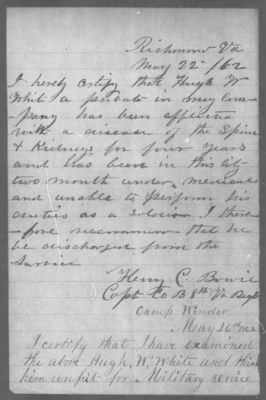 Richmond Va
May 22nd /62
I hereby certify that Hugh W
White a private in my Com-
pany has been afflicted
with a disease of the Spine
& Kidneys for four years
and has been in this City
two month under medical
and unable to perform his
duties as a soldier I there-
-fore recommend that he
be discharged from the
Service
Henry C. Bowie
Capt Co B 8th Va Regt
Camp Winder
May 24th 1862
I certify that I have examined
the above Hugh, W, White and think
him unfit for Military service